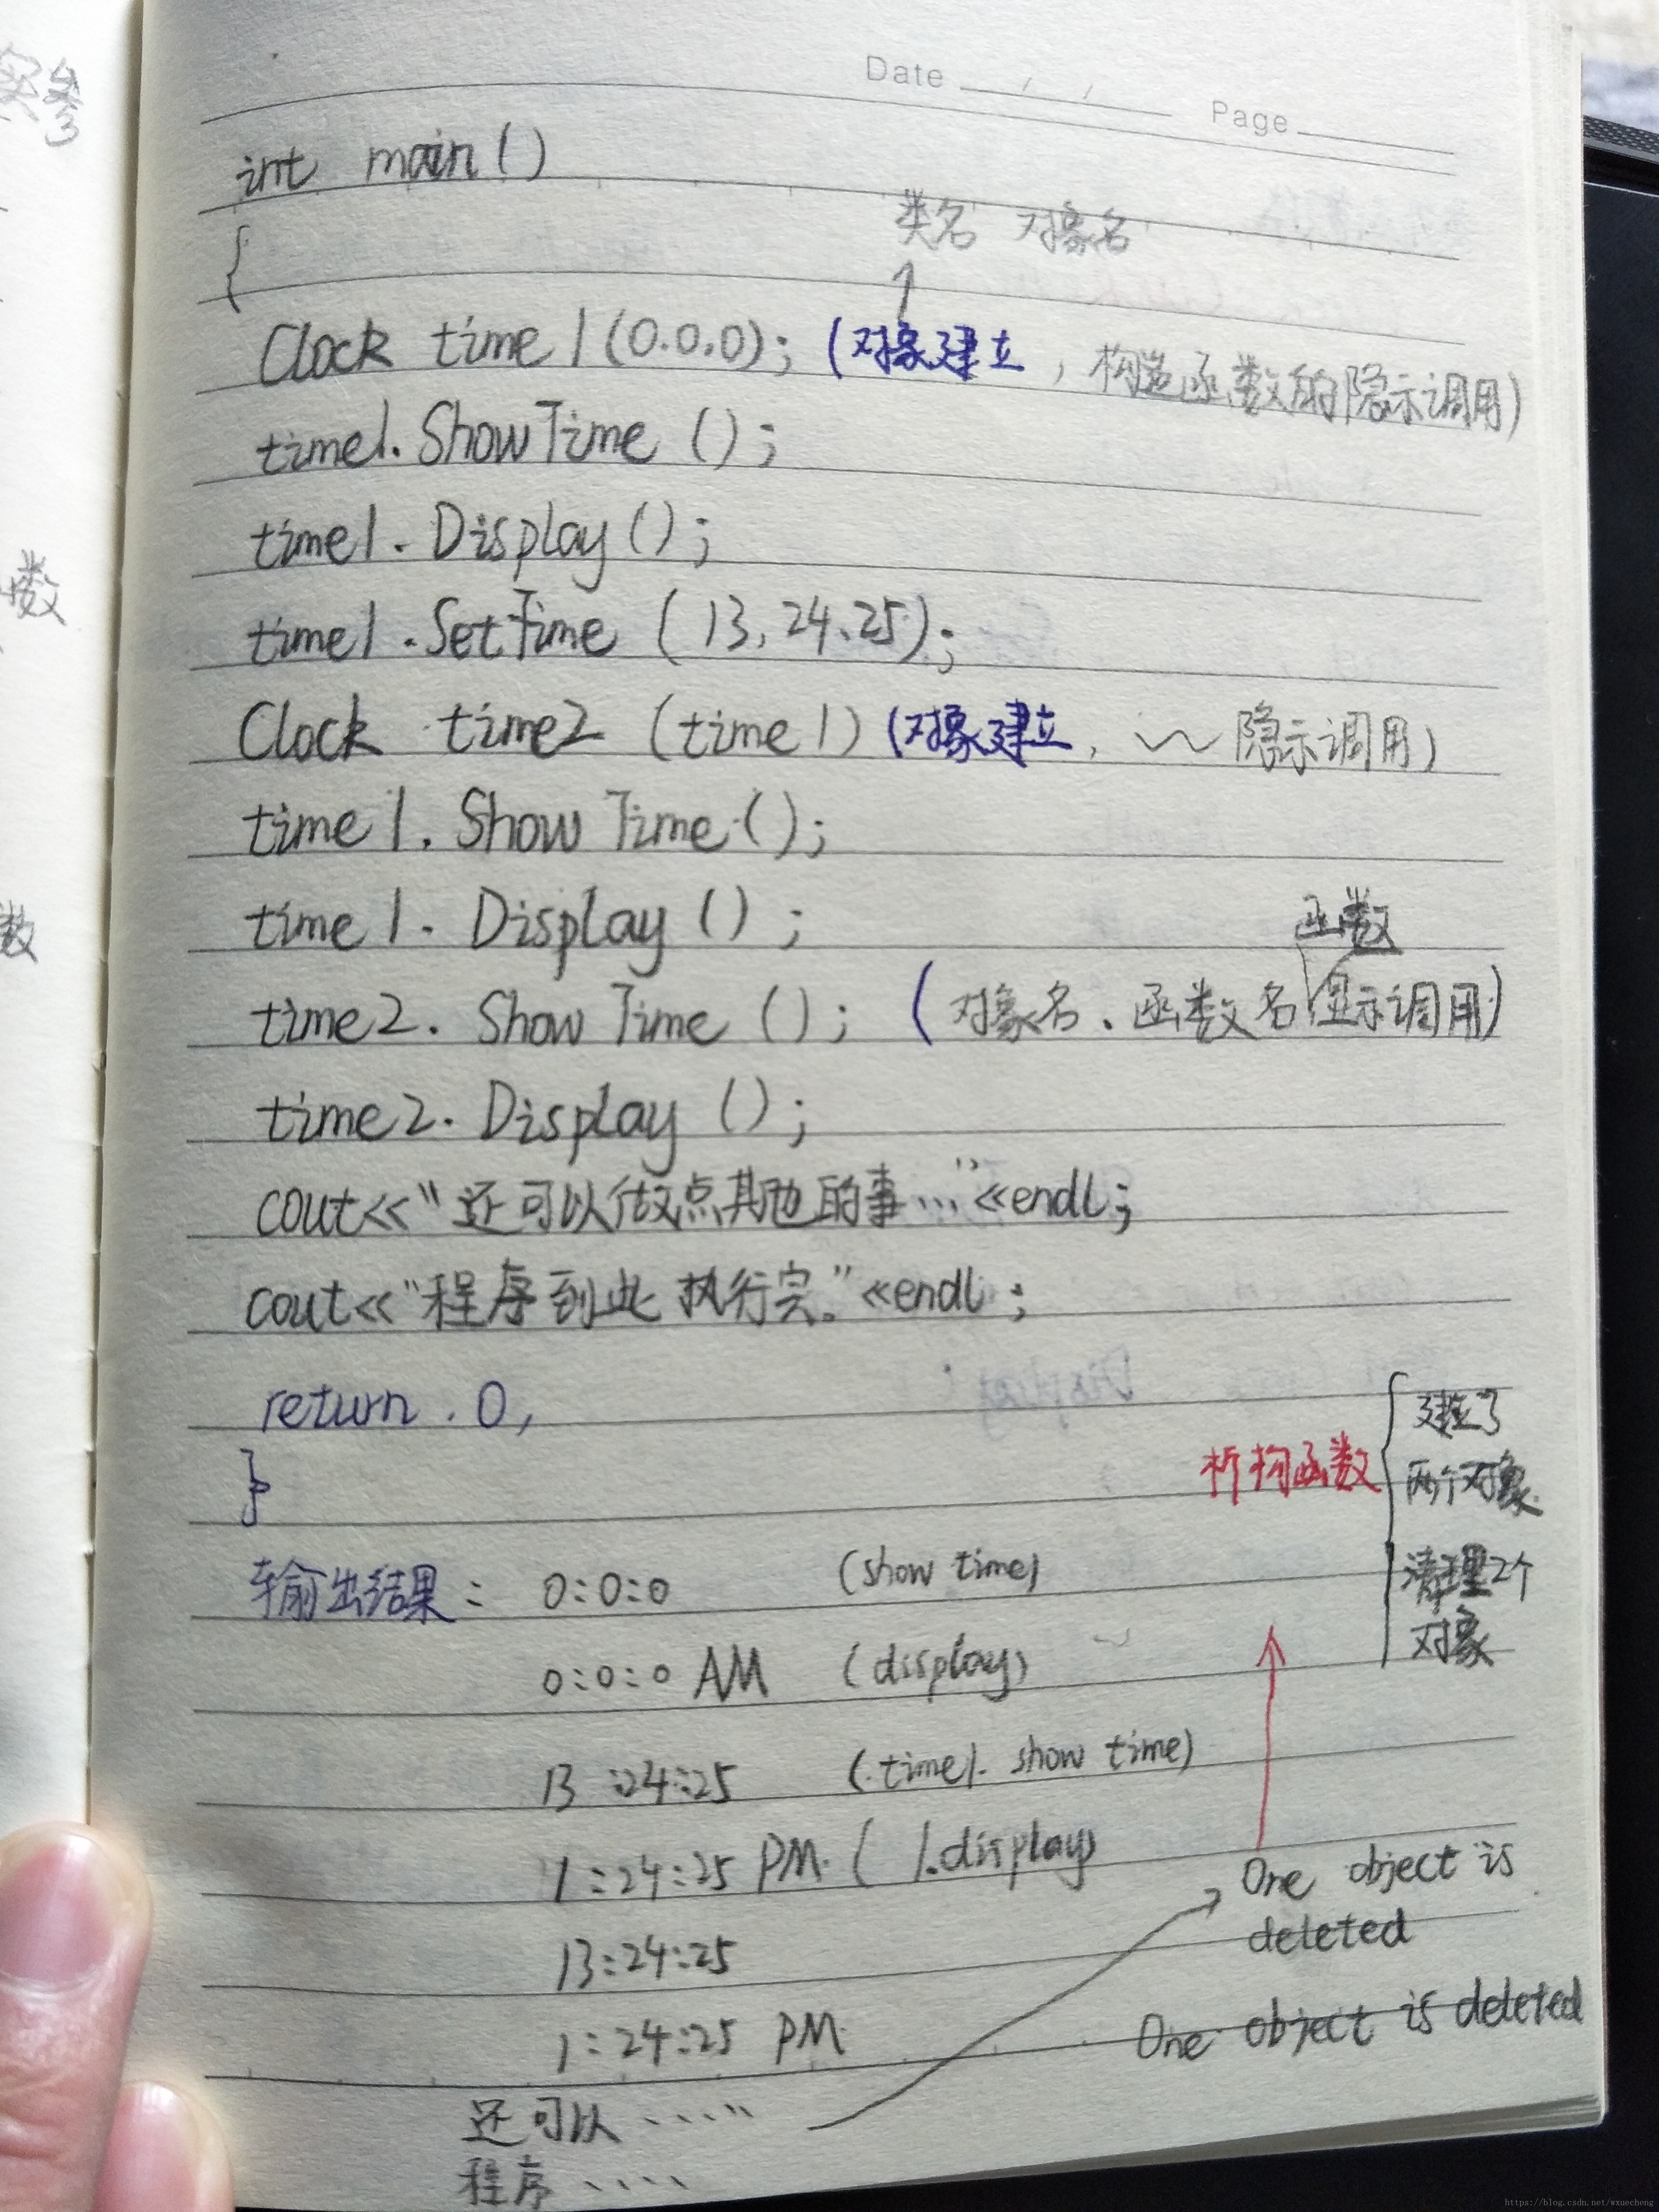 Date / / Page
实参
3
int main()
类名 对象名
{
Clock time1(0.0.0); (对象建立, 构造函数的隐示调用)
time1.ShowTime ();
time1.Display();
数
time1.SetTime (13,24、25);
Clock time2 (time1) (对象建立, 隐示调用)
time1.ShowTime();
time1.Display();
函数
数
time2.ShowTime (); (对象名.函数名 显示调用)
time2.Display ();
cout<<"还可以做点其他的事..."<<endl;
cout<<"程序到此执行完。"<<endl;
return 0,
}
析构函数
建立了
两个对象
清理2个
对象
输出结果: 0:0:0 (show time)
0:0:0 AM (display)
13:24:25 (time1. show time)
1:24:25 PM ( 1.display)
One object is
deleted
13:24:25
1:24:25 PM
One object is deleted
还可以……
程序……
https://blog.csdn.net/wxuecheng